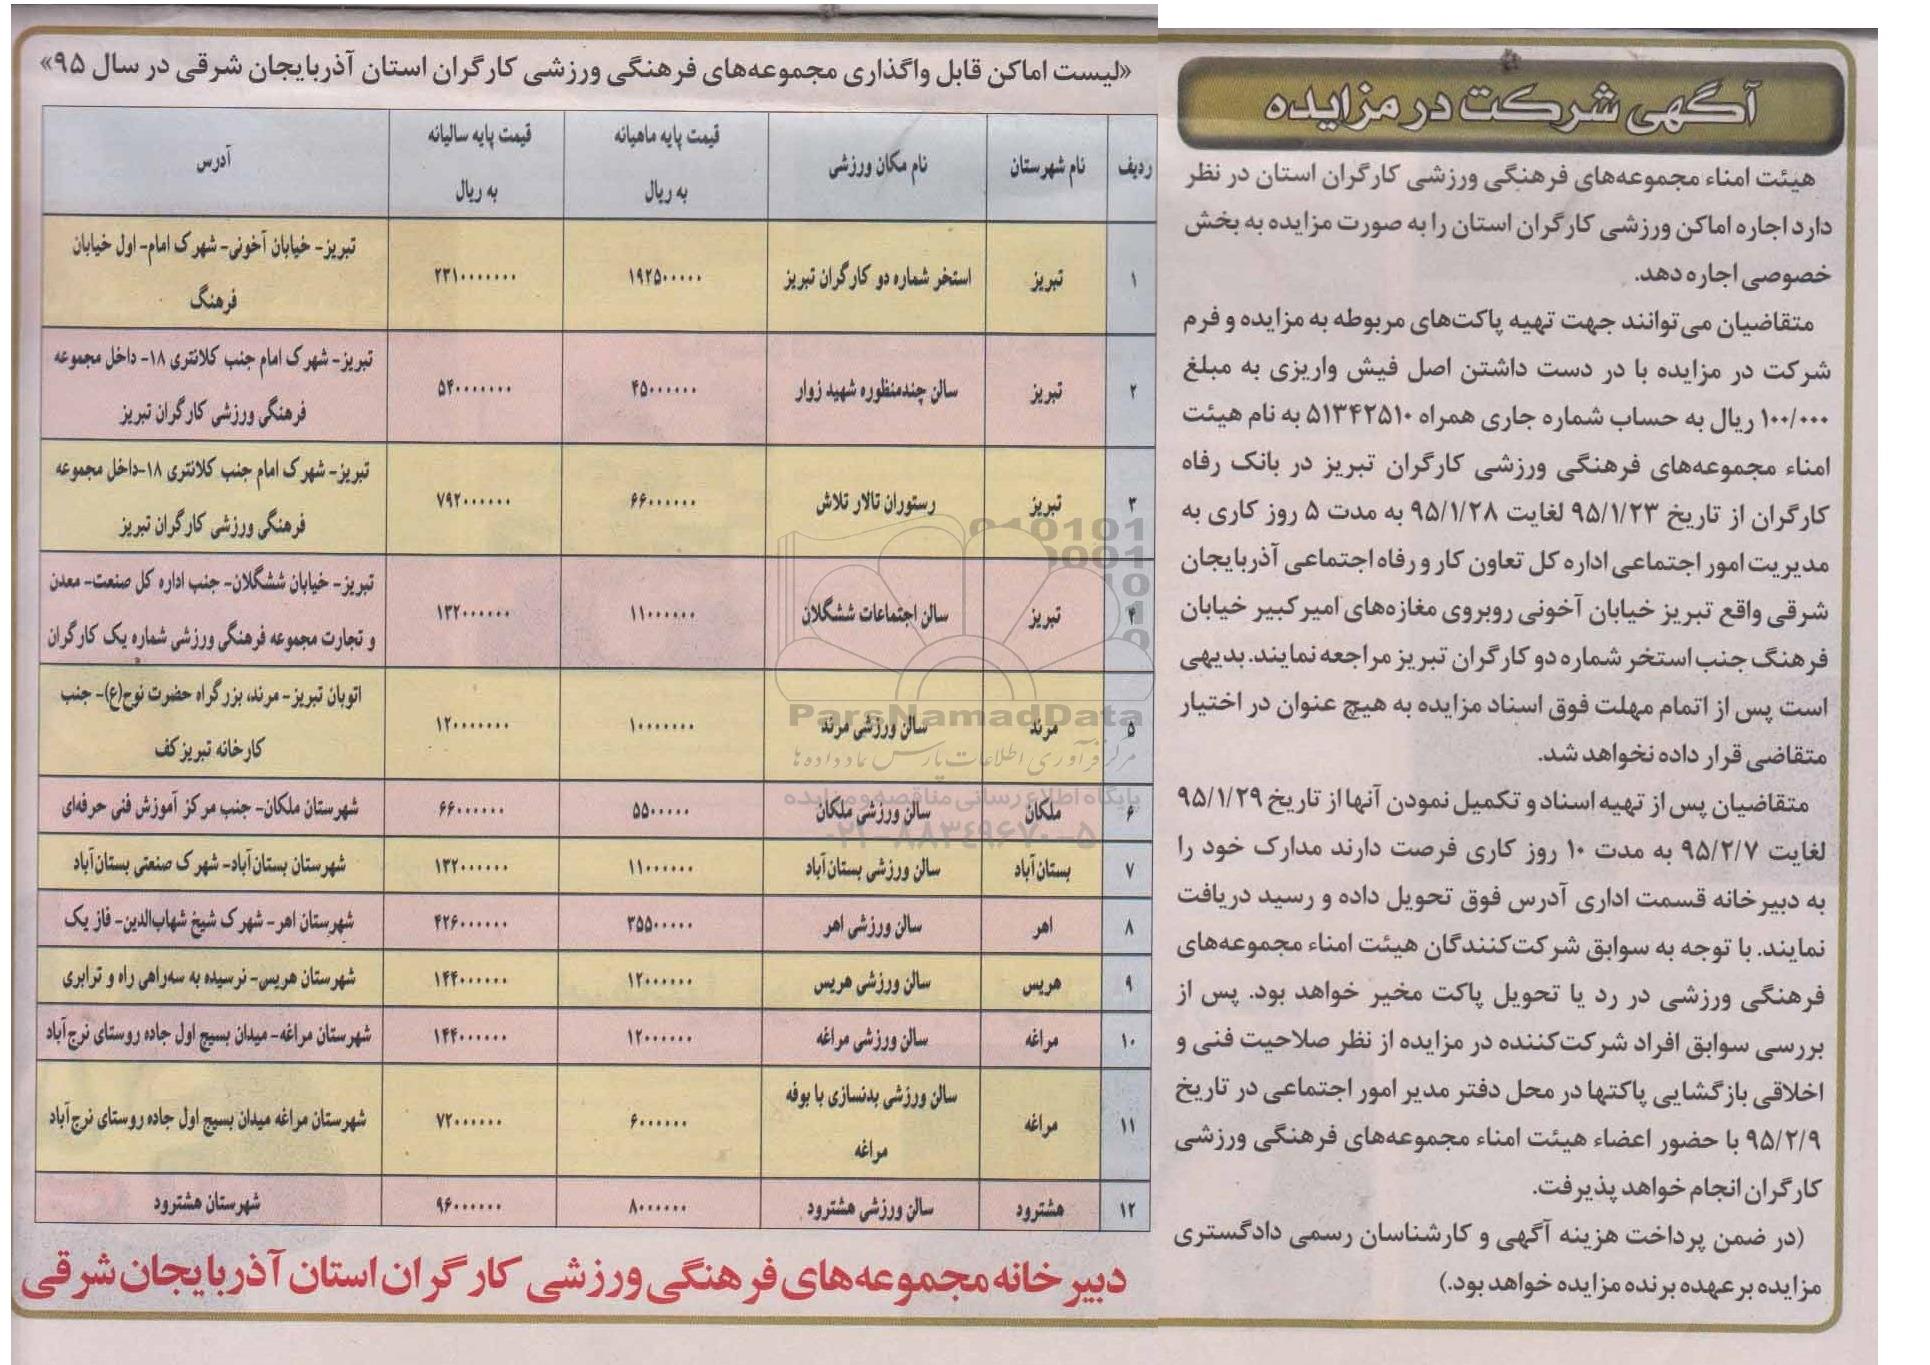 آگهی شرکت در مزایده
هیئت امناء مجموعه‌های فرهنگی ورزشی کارگران استان در نظر
دارد اجاره اماکن ورزشی کارگران استان را به صورت مزایده به بخش
خصوصی اجاره دهد.
متقاضیان می‌توانند جهت تهیه پاکت‌های مربوطه به مزایده و فرم
شرکت در مزایده با در دست داشتن اصل فیش واریزی به مبلغ
۱۰۰/۰۰۰ ریال به حساب شماره جاری همراه ۵۱۳۴۲۵۱۰ به نام هیئت
امناء مجموعه‌های فرهنگی ورزشی کارگران تبریز در بانک رفاه
کارگران از تاریخ ۹۵/۱/۲۳ لغایت ۹۵/۱/۲۸ به مدت ۵ روز کاری به
مدیریت امور اجتماعی اداره کل تعاون کار و رفاه اجتماعی آذربایجان
شرقی واقع تبریز خیابان آخونی روبروی مغازه‌های امیرکبیر خیابان
فرهنگ جنب استخر شماره دو کارگران تبریز مراجعه نمایند. بدیهی
است پس از اتمام مهلت فوق اسناد مزایده به هیچ عنوان در اختیار
متقاضی قرار داده نخواهد شد.
متقاضیان پس از تهیه اسناد و تکمیل نمودن آنها از تاریخ ۹۵/۱/۲۹
لغایت ۹۵/۲/۷ به مدت ۱۰ روز کاری فرصت دارند مدارک خود را
به دبیرخانه قسمت اداری آدرس فوق تحویل داده و رسید دریافت
نمایند. با توجه به سوابق شرکت‌کنندگان هیئت امناء مجموعه‌های
فرهنگی ورزشی در رد یا تحویل پاکت مخیر خواهد بود. پس از
بررسی سوابق افراد شرکت‌کننده در مزایده از نظر صلاحیت فنی و
اخلاقی بازگشایی پاکتها در محل دفتر مدیر امور اجتماعی در تاریخ
۹۵/۲/۹ با حضور اعضاء هیئت امناء مجموعه‌های فرهنگی ورزشی
کارگران انجام خواهد پذیرفت.
(در ضمن پرداخت هزینه آگهی و کارشناسان رسمی دادگستری
مزایده بر عهده برنده مزایده خواهد بود.)
«لیست اماکن قابل واگذاری مجموعه‌های فرهنگی ورزشی کارگران استان آذربایجان شرقی در سال ۹۵»
ردیف نام شهرستان نام مکان ورزشی قیمت پایه ماهیانه به ریال قیمت پایه سالیانه به ریال آدرس
۱ تبریز استخر شماره دو کارگران تبریز ۱۹۲۵۰۰۰۰۰ ۲۳۱۰۰۰۰۰۰۰ تبریز- خیابان آخونی- شهرک امام- اول خیابان
فرهنگ
۲ تبریز سالن چندمنظوره شهید زوار ۴۵۰۰۰۰۰۰ ۵۴۰۰۰۰۰۰۰ تبریز- شهرک امام جنب کلانتری ۱۸- داخل مجموعه
فرهنگی ورزشی کارگران تبریز
۳ تبریز رستوران تالار تلاش ۶۶۰۰۰۰۰۰ ۷۹۲۰۰۰۰۰۰ تبریز- شهرک امام جنب کلانتری ۱۸-داخل مجموعه
فرهنگی ورزشی کارگران تبریز
۴ تبریز سالن اجتماعات ششگلان ۱۱۰۰۰۰۰۰ ۱۳۲۰۰۰۰۰۰ تبریز- خیابان ششگلان- جنب اداره کل صنعت- معدن
و تجارت مجموعه فرهنگی ورزشی شماره یک کارگران
۵ مرند سالن ورزشی مرند ۱۰۰۰۰۰۰۰ ۱۲۰۰۰۰۰۰۰ اتوبان تبریز- مرند، بزرگراه حضرت نوح(ع)- جنب
کارخانه تبریزکف
۶ ملکان سالن ورزشی ملکان ۵۵۰۰۰۰۰ ۶۶۰۰۰۰۰۰ شهرستان ملکان- جنب مرکز آموزش فنی حرفه‌ای
۷ بستان‌آباد سالن ورزشی بستان‌آباد ۱۱۰۰۰۰۰۰ ۱۳۲۰۰۰۰۰۰ شهرستان بستان‌آباد- شهرک صنعتی بستان‌آباد
۸ اهر سالن ورزشی اهر ۳۵۵۰۰۰۰۰ ۴۲۶۰۰۰۰۰۰ شهرستان اهر- شهرک شیخ شهاب‌الدین- فاز یک
۹ هریس سالن ورزشی هریس ۱۲۰۰۰۰۰۰ ۱۴۴۰۰۰۰۰۰ شهرستان هریس- نرسیده به سه‌راهی راه و ترابری
۱۰ مراغه سالن ورزشی مراغه ۱۲۰۰۰۰۰۰ ۱۴۴۰۰۰۰۰۰ شهرستان مراغه- میدان بسیج اول جاده روستای نرج‌آباد
۱۱ مراغه سالن ورزشی بدنسازی با بوفه مراغه ۶۰۰۰۰۰۰ ۷۲۰۰۰۰۰۰ شهرستان مراغه میدان بسیج اول جاده روستای نرج‌آباد
۱۲ هشترود سالن ورزشی هشترود ۸۰۰۰۰۰۰ ۹۶۰۰۰۰۰۰ شهرستان هشترود
دبیرخانه مجموعه‌های فرهنگی ورزشی کارگران استان آذربایجان شرقی
ParsNamadData
مرکز فرآوری اطلاعات پارس نماد داده‌ها
پایگاه اطلاع رسانی مناقصه و مزایده
۰۲۱-۸۸۳۴۹۶۷۰-۵